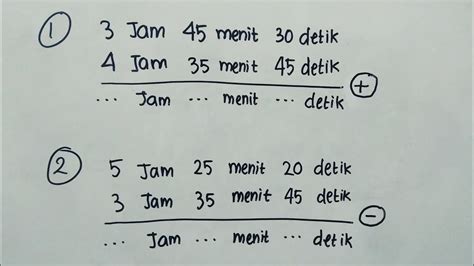 1 3 Jam 45 menit 30 detik
4 Jam 35 menit 45 detik +
... Jam ... menit ... detik
2 5 Jam 25 menit 20 detik
3 Jam 35 menit 45 detik -
... Jam ... menit ... detik